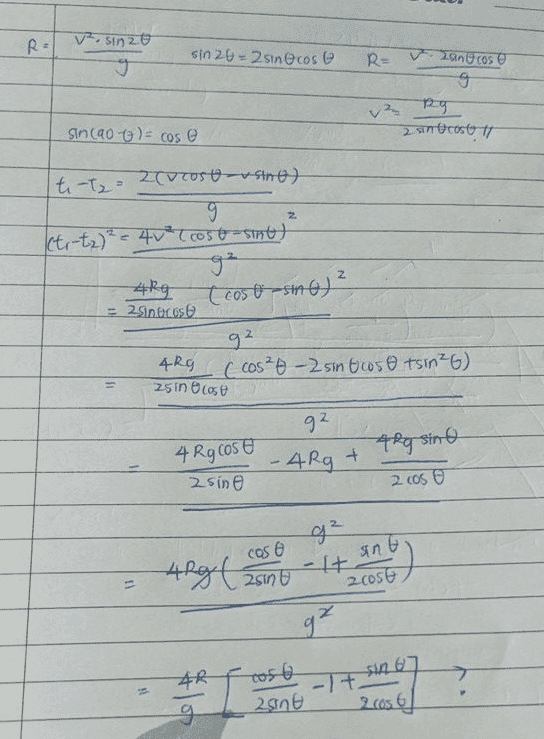 R = v²·sin2θ / g    sin2θ = 2sinθcosθ    R = v²·2sinθcosθ / g
v² = Rg / 2sinθcosθ //
sin(90-θ) = cosθ
t₁-T₂ = 2(vcosθ-vsinθ) / g
(t₁-t₂)² = 4v²(cosθ-sinθ)² / g²
= 4Rg / 2sinθcosθ (cosθ-sinθ)² / g²
= 4Rg / 2sinθcosθ (cos²θ-2sinθcosθ+sin²θ) / g²
= 4Rgcosθ / 2sinθ - 4Rg + 4Rg sinθ / 2cosθ / g²
= 4Rg(cosθ / 2sinθ - 1 + sinθ / 2cosθ) / g²
= 4R / g [cosθ / 2sinθ - 1 + sinθ / 2cosθ] ?